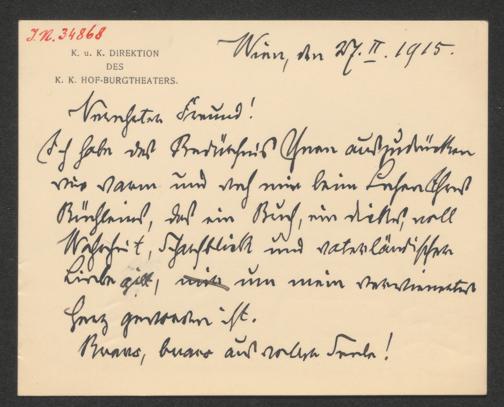 J.N. 34868
K. u. K. DIREKTION
DES
K. K. HOF-BURGTHEATERS.
Wien, den 27. II. 1915.
Verehrter Freund!
Ich habe das Bedürfnis Ihnen auszudrücken
wie warm und weh mir beim Lesen Ihres
Büchleins, das ein Buch, ein dickes, voll
Wahrheit, Scharfblick und vaterländischer
Liebe gilt, um mein
Herz geworden ist.
Bravo, bravo aus voller Seele!